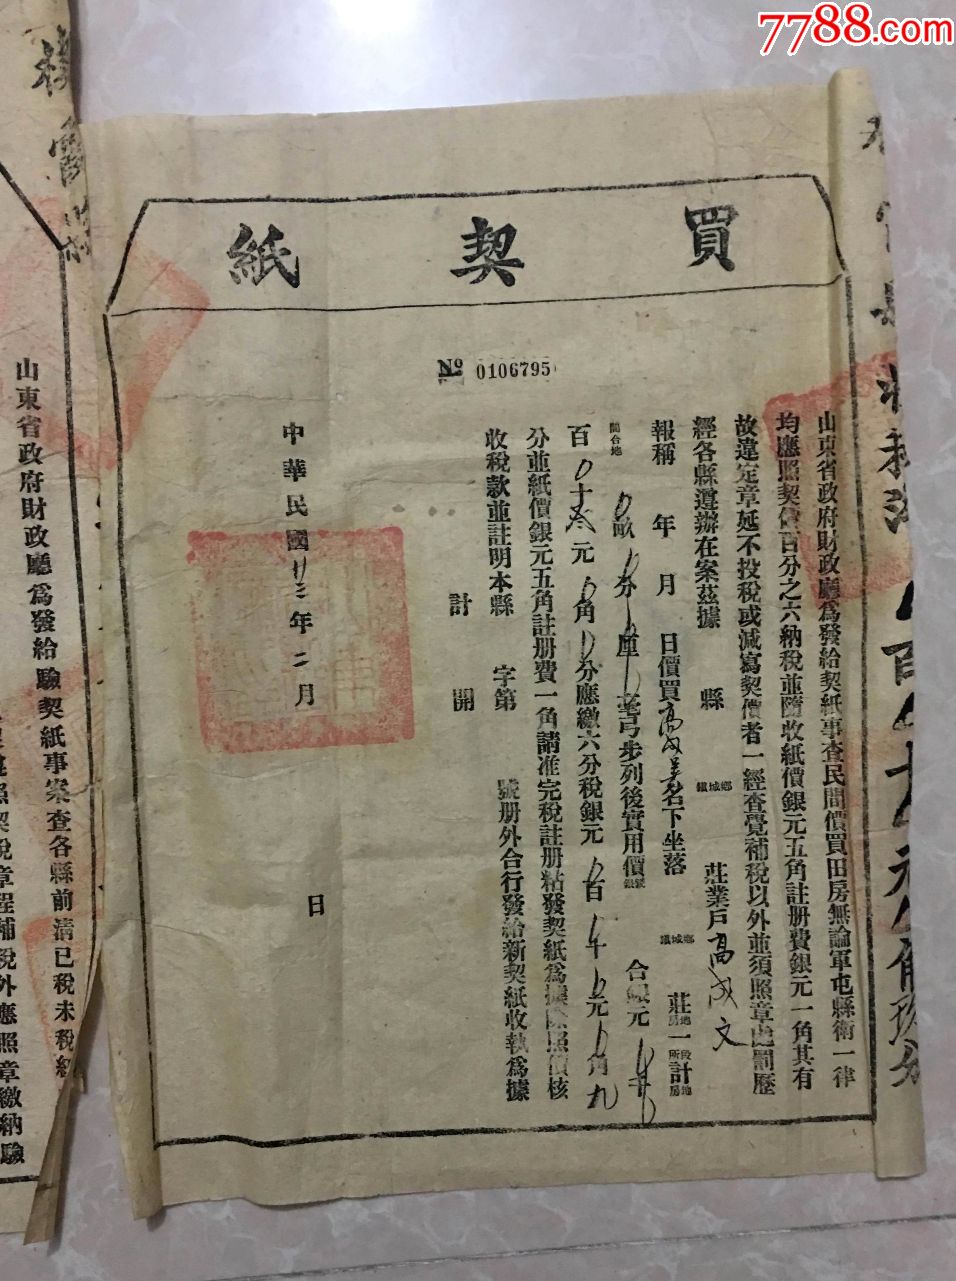 7788.com
買契紙
№ 0106795
山東省政府財政廳爲發給契紙事查民間價買田房無論軍屯縣衛一律
均應照契價百分之六納稅並隨收紙價銀元五角註册費銀元一角其有
故違定章延不投稅或減寫契價者一經查覺補稅以外並須照章處罰歷
經各縣遵辦在案茲據 縣 鄉城鎮 莊業戶高成文
報稱 年 月 日價買高成美名下坐落 鄉城鎮 莊 一 計
畝 分 厘 毫 弓步列後實用價 合銀元
百 十叁元 角 分應繳六分稅銀元 百 十 元 角九
分並紙價銀元五角註册費一角請准完稅註册粘發契紙爲據除照價核
收稅款並註明本縣 字第 號册外合行發給新契紙收執爲據
計開
中華民國廿三年二月 日
山東省政府財政廳爲發給驗契紙事案查各縣前清已稅未稅
照契稅章程補稅外應照章繳納驗